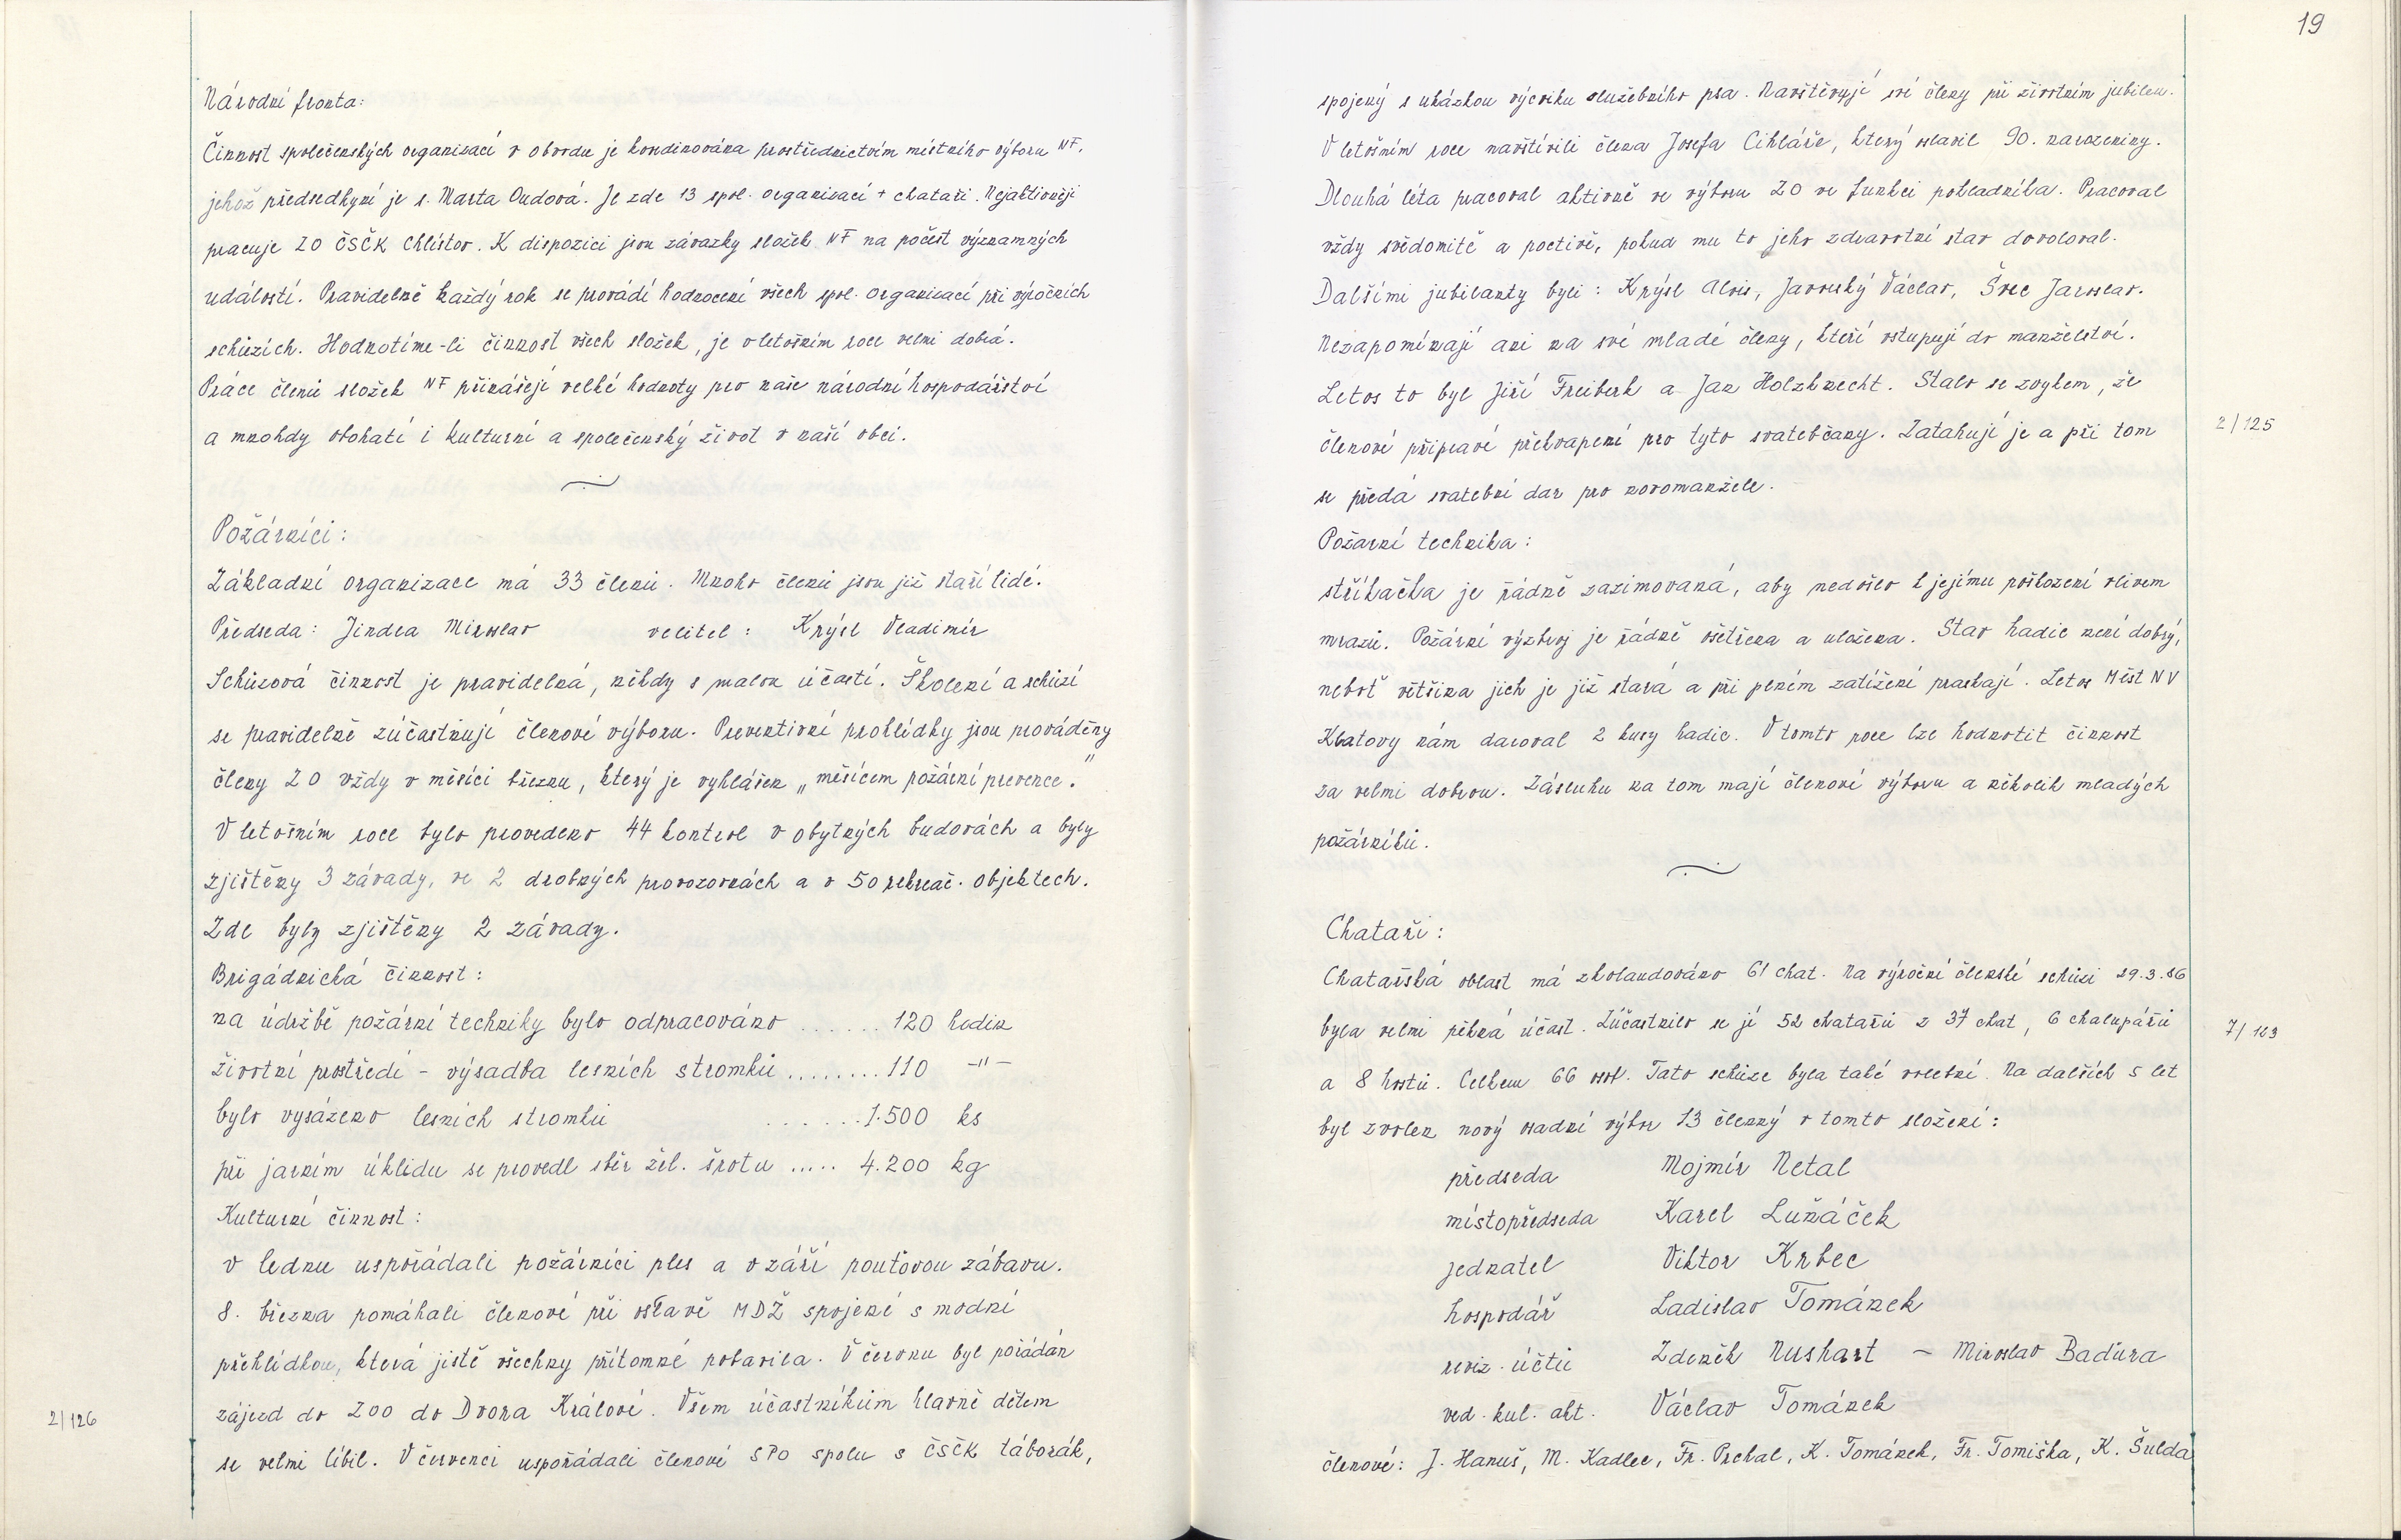 Národní fronta:
Činnost společenských organizací v obvodu je koordinována prostřednictvím místního výboru NF,
jehož předsedkyní je s. Marta Oudová. Je zde 13 spol. organizací + chataři. Nejaktivněji
pracuje ZO ČSČK Chlistov. K dispozici jsou závazky složek NF na počest významných
událostí. Pravidelně každý rok se provádí hodnocení všech spol. organizací při výročních
schůzích. Hodnotíme-li činnost všech složek, je v letošním roce velmi dobrá.
Práce členů složek NF přinášejí velké hodnoty pro naše národní hospodářství
a mnohdy obohatí i kulturní a společenský život v naší obci.
Požárníci:
Základní organizace má 33 členů. Mnoho členů jsou již staří lidé.
Předseda: Jindra Miroslav velitel: Krýsl Vladimír
Schůzová činnost je pravidelná, někdy s malou účastí. Školení a schůzí
se pravidelně zúčastňují členové výboru. Preventivní prohlídky jsou prováděny
členy ZO vždy v měsíci březnu, který je vyhlášen „měsícem požární prevence."
V letošním roce bylo provedeno 44 kontrol v obytných budovách a byly
zjištěny 3 závady, ve 2 drobných provozovnách a v 50 rekreač. objektech.
Zde byly zjištěny 2 závady.
Brigádnická činnost:
na údržbě požární techniky bylo odpracováno ...... 120 hodin
životní prostředí - výsadba lesních stromků ........ 110 -"-
bylo vysázeno lesních stromků ...... 1.500 ks
při jarním úklidu se provedl sběr žel. šrotu ..... 4.200 kg
Kulturní činnost:
v lednu uspořádali požárníci ples a v září pouťovou zábavu.
8. března pomáhali členové při oslavě MDŽ spojené s módní
přehlídkou, která jistě všechny přítomné pobavila. V červnu byl pořádán
2/126
zájezd do ZOO do Dvora Králové. Všem účastníkům hlavně dětem
se velmi líbil. V červenci uspořádali členové SPO spolu s ČSČK táborák,
19
spojený s ukázkou výcviku služebního psa. Navštěvují své členy při životním jubileu.
V letošním roce navštívili člena Josefa Cihláře, který slavil 90. narozeniny.
Dlouhá léta pracoval aktivně ve výboru ZO ve funkci pokladníka. Pracoval
vždy svědomitě a poctivě, pokud mu to jeho zdravotní stav dovoloval.
Dalšími jubilanty byli: Krýsl Alois, Javorský Václav, Švec Jaroslav.
Nezapomínají ani na své mladé členy, kteří vstupují do manželství.
Letos to byl Jiří Freiberk a Jan Holzknecht. Stalo se zvykem, že
členové připraví překvapení pro tyto svatebčany. Zatahují je a při tom
2/125
se předá svatební dar pro novomanžele.
Požární technika:
stříkačka je řádně zazimovaná, aby nedošlo k jejímu poškození vlivem
mrazů. Požární výzbroj je řádně ošetřena a uložena. Stav hadic není dobrý,
neboť většina jich je již stará a při plném zatížení praskají. Letos Měst NV
Klatovy nám daroval 2 kusy hadic. V tomto roce lze hodnotit činnost
za velmi dobrou. Zásluhu na tom mají členové výboru a několik mladých
požárníků.
Chataři:
Chatařská oblast má zkolaudováno 61 chat. Na výroční členské schůzi 29.3.86
byla velmi pěkná účast. Zúčastnilo se jí 52 chatařů z 37 chat, 6 chalupářů
7/103
a 8 hostů. Celkem 66 osob. Tato schůze byla také volební. Na dalších 5 let
byl zvolen nový osadní výbor 13 členný v tomto složení:
předseda Mojmír Netal
místopředseda Karel Luňáček
jednatel Viktor Krbec
hospodář Ladislav Tománek
reviz. účtů Zdeněk Nushart - Miroslav Baďura
ved. kul. akt. Václav Tománek
členové: J. Hanuš, M. Kadlec, Fr. Prchal, K. Tománek, Fr. Tomiška, K. Šulda